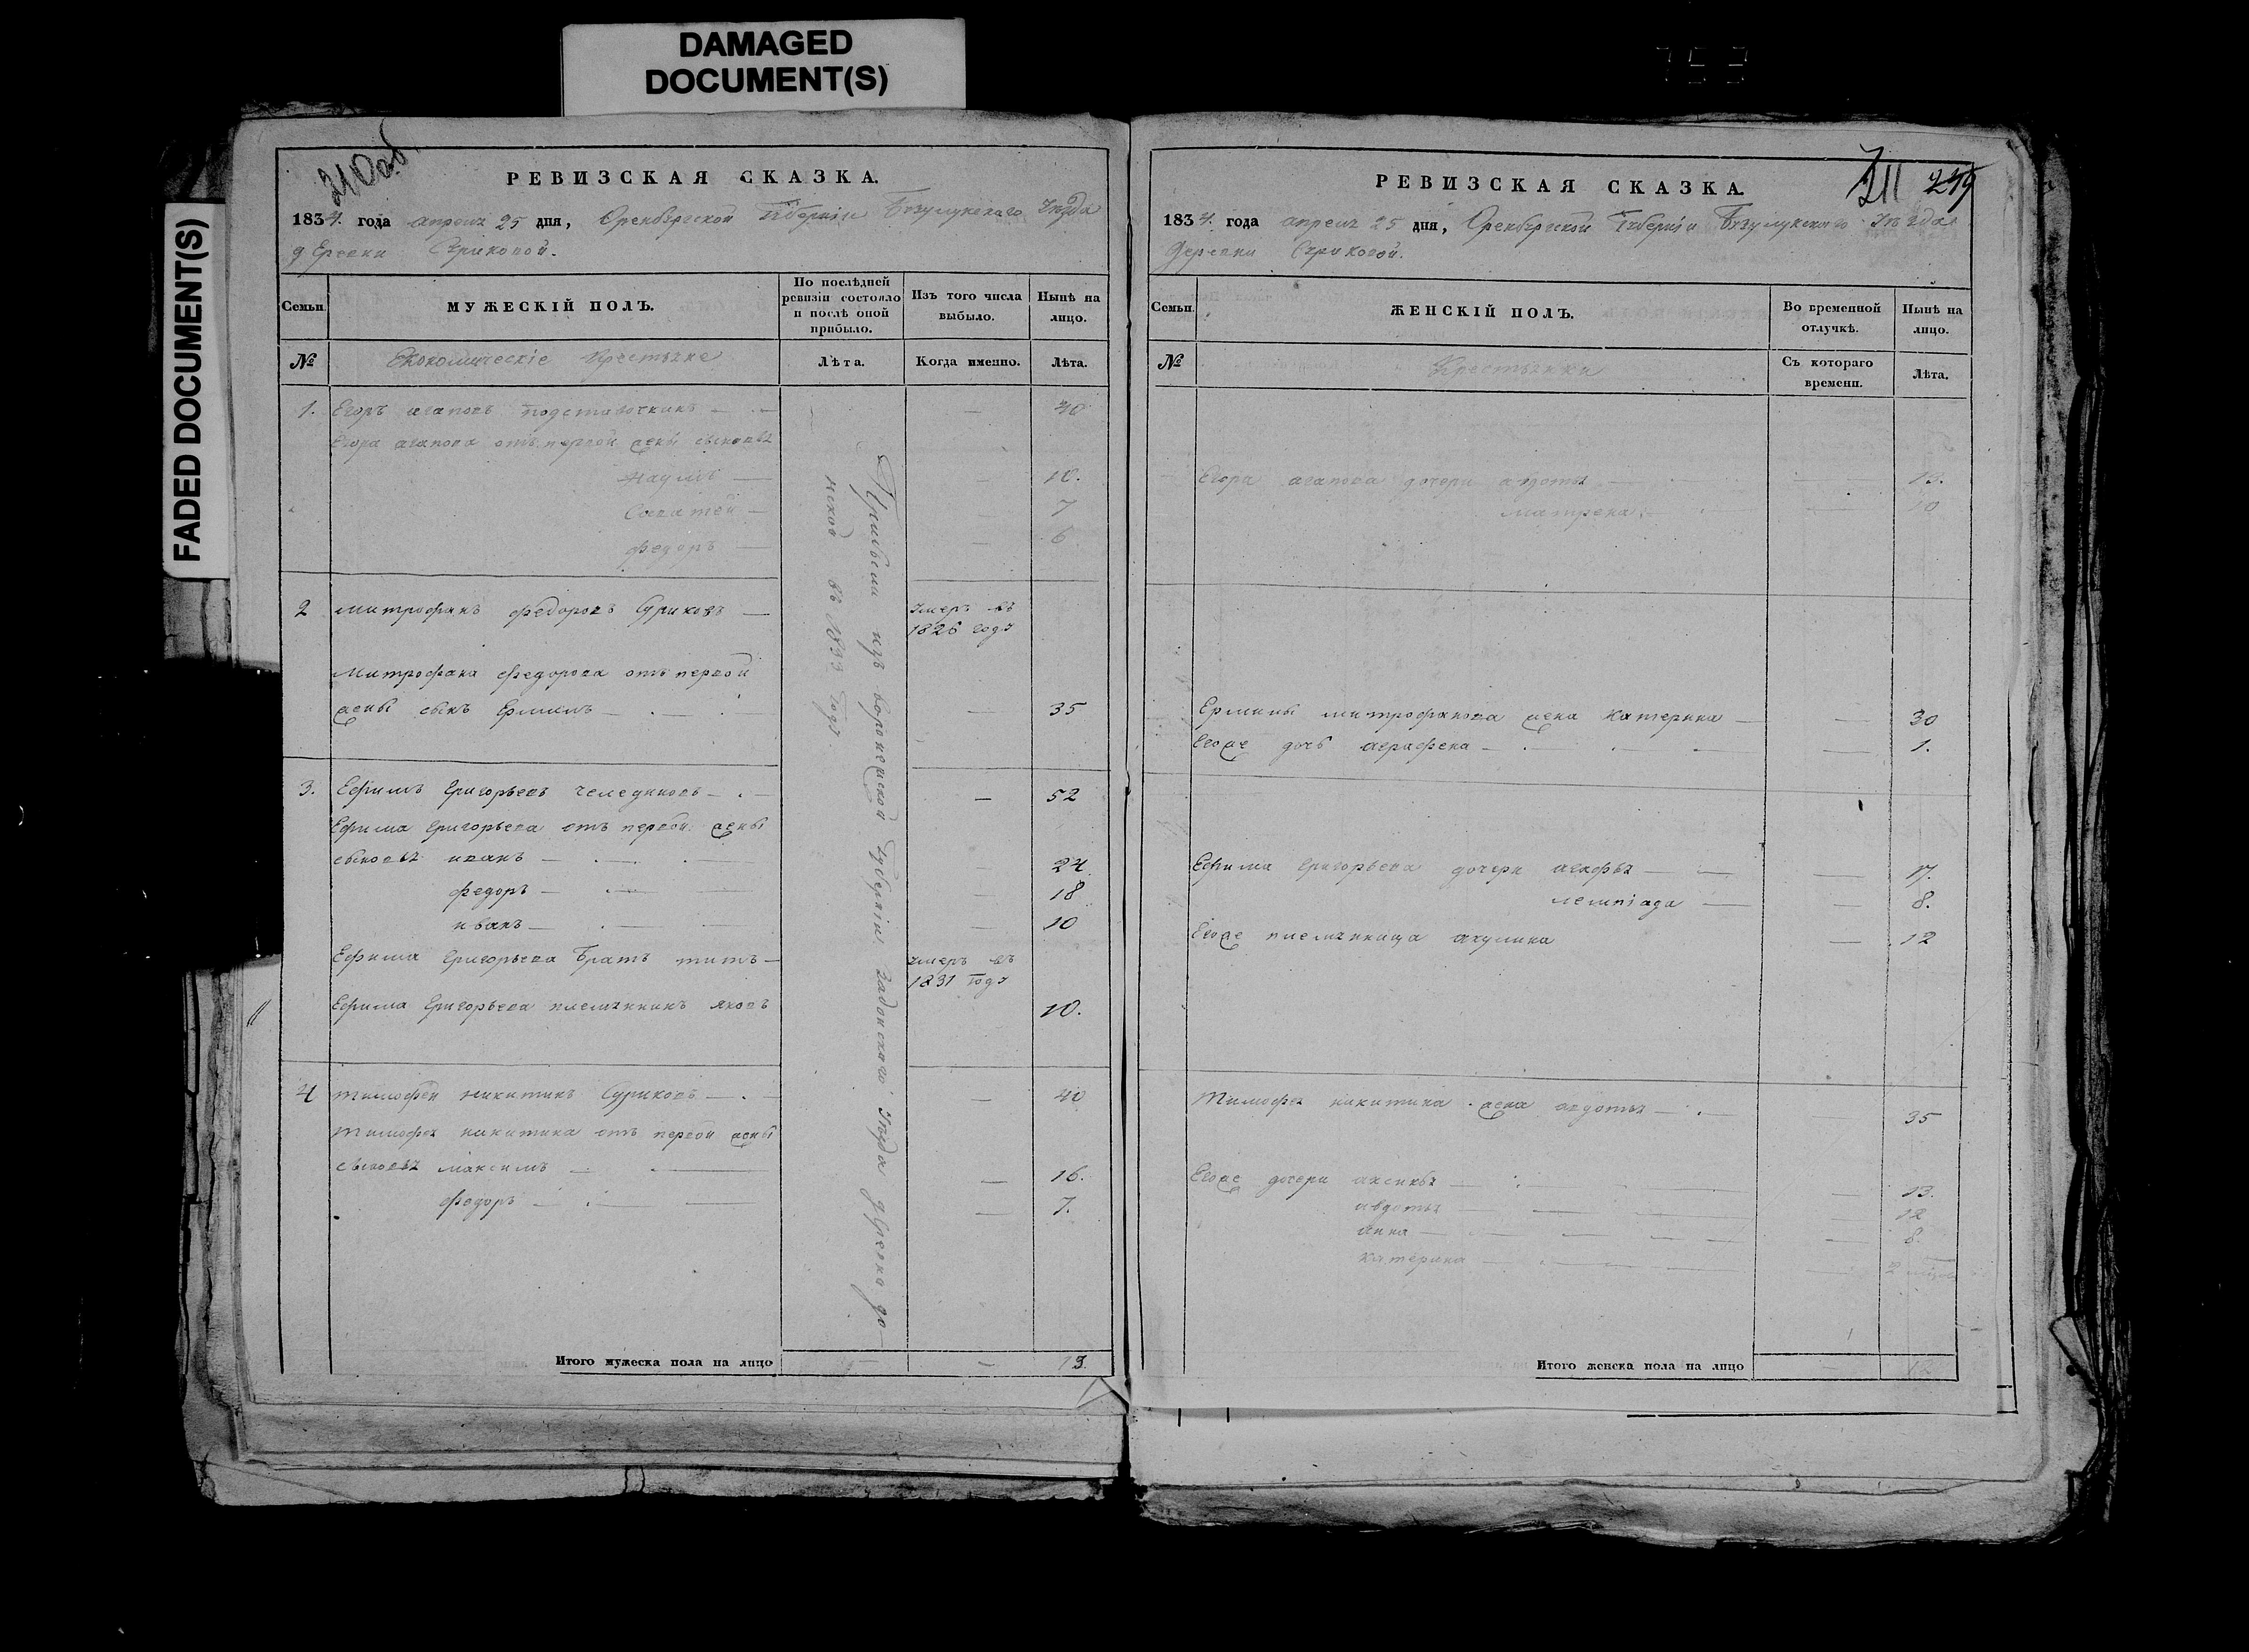 DAMAGED
DOCUMENT(S)
FADED DOCUMENT(S)
210 об.
РЕВИЗСКАЯ СКАЗКА.
1834. года апреля 25 дня, Оренбургской Губерніи Бузулукскаго Уезда
деревни Суриковой.
Семьи
МУЖЕСКІЙ ПОЛЪ.
По послѣдней ревизіи состояло и послѣ оной прибыло.
Изъ того числа выбыло.
Нынѣ на лицо.
№
Економическіе Крестьяне
Лѣта.
Когда именно.
Лѣта.
1. Егоръ агаповъ — 40
Егора агапова отъ первой жены сыновья
Наумъ — 10.
Саватей — 7
федоръ — 6
2 митрофанъ федоровъ Суриковъ — умеръ въ
1826 году
Митрофана федорова отъ первой
жены сынъ Ермилъ — 35
3. Ефимъ Григорьевъ чемодуровъ — 52
Ефима Григорьева отъ первой жены
сыновья иванъ — 24
федоръ — 18
иванъ — 10
Ефима Григорьева Братъ титъ — умеръ въ
1831 году
Ефима Григорьева племянникъ яковъ 10.
4 тимофей никитинъ Суриковъ — 40
тимофея никитина отъ первой жены
сыновья максимъ — 16.
федоръ — 7.
Прибыли изъ воронежской губерніи задонскаго уезда
в 1833 году.
Итого мужеска пола на лицо — — 13.
211 219
РЕВИЗСКАЯ СКАЗКА.
1834. года апреля 25 дня, Оренбургской Губерніи Бузулукскаго Уезда
деревни Суриковой.
Семьи
ЖЕНСКІЙ ПОЛЪ.
Во временной отлучкѣ.
Нынѣ на лицо.
№
Крестьянки
Съ котораго времени.
Лѣта.
Егора агапова дочери авдотья — 13.
матрена — 10
Ермилы митрофанова жена катерина — 30
Егоже дочь аграфена — 1.
Ефима Григорьева дочери агафья — 17.
лемпіада — 8.
Егоже племянница акулина — 12
Тимофея никитина жена авдотья — 35
Егоже дочери аксинья — 13.
авдотья — 12
анна — 8.
катерина — 2
Итого женска пола на лицо